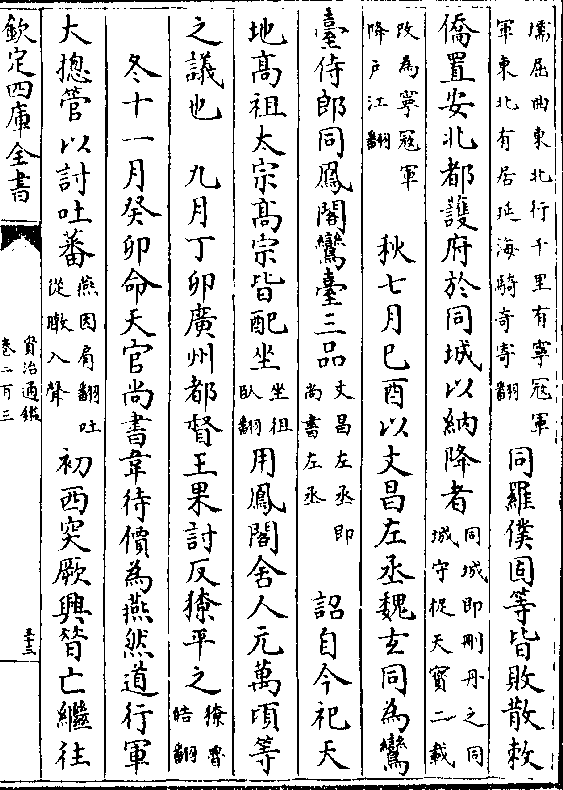 孺屈曲東北行千里有寧冦軍
軍東北有居延海騎奇寄翻
同羅僕固等皆敗散敕
僑置安北都護府於同城以納降者
同城即刪丹之同
城守捉天寶二載
改為寧冦軍
降戶江翻
秋七月己酉以文昌左丞魏玄同為鸞
臺侍郎同鳳閣鸞臺三品
文昌左丞即
尚書左丞
詔自今祀天
地髙祖太宗髙宗皆配坐
坐徂
臥翻
用鳳閣舍人元萬頃等
之議也　九月丁卯廣州都督王果討反獠平之
獠魯
皓翻
冬十一月癸卯命天官尚書韋待價為燕然道行軍
大揔管以討吐蕃
燕因肩翻吐
從暾入聲
初西突厥興昔亡繼往
欽定四庫全書
資治通鑑
卷二百三